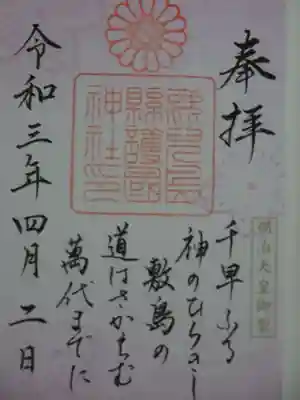 奉拝
鹿兒島
縣護國
神社印
明治天皇御製
千早ふる
神のひらきし
敷島の
道はさかえむ
萬代までに
令和三年四月二日